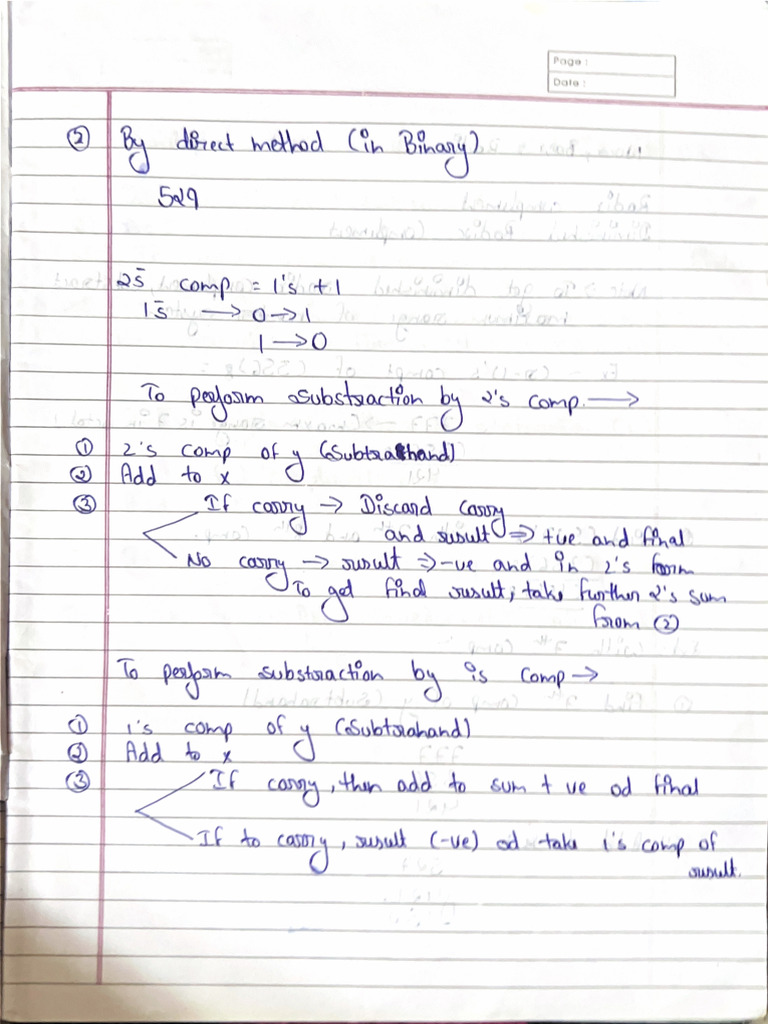 Page :
Date :
② By direct method (in Binary)
529
2s̄ comp = 1's + 1
1s̄ → 0 → 1
1 → 0
To perform substraction by 2's comp. →
① 2's comp of y (Subtrahand)
② Add to x
③ If carry → Discard carry
and result ⇒ +ve and final
No carry → result ⇒ -ve and in 2's form
To get find result, take further 2's sum
from ②
To perform substraction by is comp →
① 1's comp of y (Subtrahand)
② Add to x
③ If carry, then add to sum + ve od final
If to carry, result (-ve) od take 1's comp of
result.